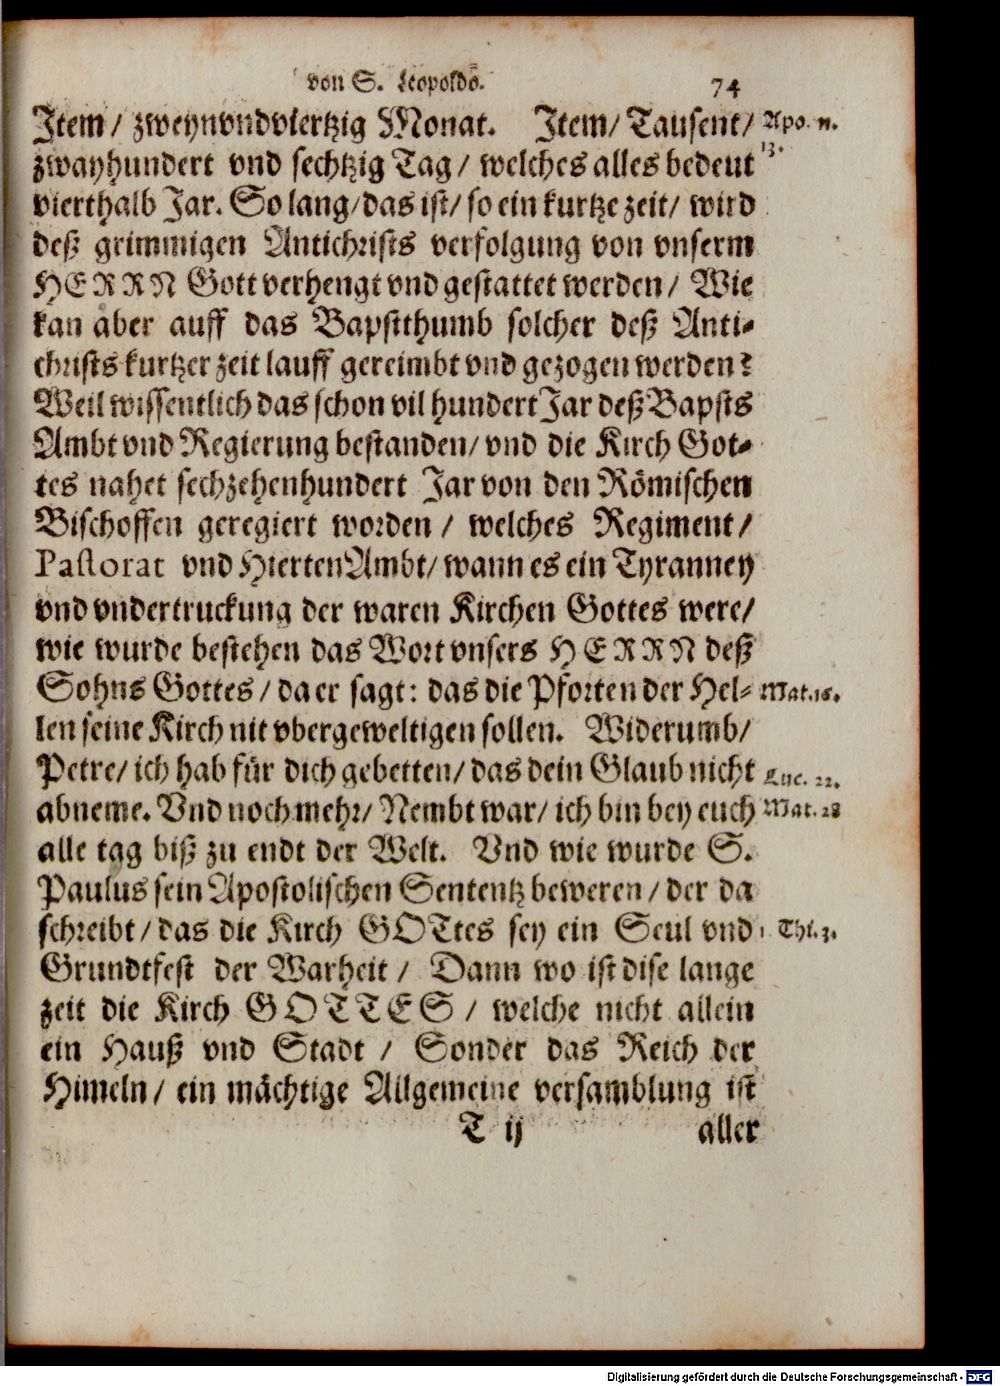 von S. Leopoldo. 74
Item / zweynvndviertzig Monat. Item / Tausent / Apo. 11.
13.
zwayhundert vnd sechtzig Tag / welches alles bedeut
vierthalb Jar. So lang / das ist / so ein kurtze zeit / wird
deß grimmigen Antichrists verfolgung von vnserm
HERRN Gott verhengt vnd gestattet werden / Wie
kan aber auff das Bapstthumb solcher deß Anti-
christs kurtzer zeit lauff gereimbt vnd gezogen werden?
Weil wissentlich das schon vil hundert Jar deß Bapsts
Ambt vnd Regierung bestanden / vnd die Kirch Got-
tes nahet sechzehenhundert Jar von den Römischen
Bischoffen geregiert worden / welches Regiment /
Pastorat vnd Hierten Ambt / wann es ein Tyranney
vnd vndertruckung der waren Kirchen Gottes were /
wie wurde bestehen das Wort vnsers HERRN deß
Sohns Gottes / da er sagt: das die Pforten der Hel- Mat. 16.
len seine Kirch nit vbergeweltigen sollen. Widerumb /
Petre / ich hab für dich gebetten / das dein Glaub nicht Luc. 22.
abneme. Vnd noch mehr / Nembt war / ich bin bey euch Mat. 28
alle tag biß zu endt der Welt. Vnd wie wurde S.
Paulus sein Apostolischen Sententz beweren / der da
schreibt / das die Kirch GOTtes sey ein Seul vnd 1. Thi. 3.
Grundtfest der Warheit / Dann wo ist dise lange
zeit die Kirch GOTTES / welche nicht allein
ein Hauß vnd Stadt / Sonder das Reich der
Himeln / ein mächtige Allgemeine versamblung ist
T ij aller
Digitalisierung gefördert durch die Deutsche Forschungsgemeinschaft - DFG